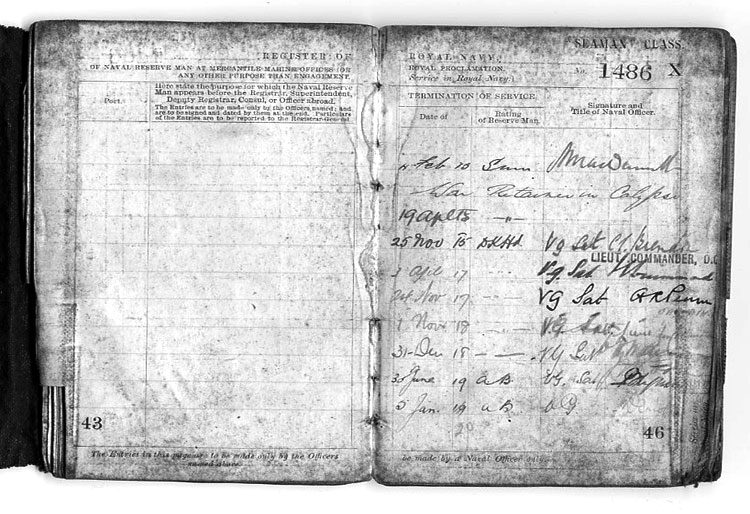 REGISTER OF
OF NAVAL RESERVE MAN AT MERCANTILE MARINE OFFICES FOR
ANY OTHER PURPOSE THAN ENGAGEMENT.
Port.
Here state the purpose for which the Naval Reserve
Man appears before the Registrar, Superintendent,
Deputy Registrar, Consul, or Officer abroad.
The Entries are to be made only by the Officers named; and
are to be signed and dated by them at the end. Particulars
of the Entries are to be reported to the Registrar-General.
43
The Entries in this page are to be made only by the Officers
named above.
SEAMAN CLASS.
ROYAL NAVY.
ROYAL PROCLAMATION.
Service in Royal Navy.
No. 1486 X
TERMINATION OF SERVICE.
Date of
Rating
of Reserve Man.
Signature and
Title of Naval Officer.
Feb
War Retainer in Calypso
19 Apl 15 -"-
25 Nov 15 DKHd VG Sat
LIEUT. COMMANDER,
Apl 17 VG Sat
Nov 17 VG Sat
1 Nov 18 VG Sat
31 Dec 18 VG Sat
30 June 19 AB VG Sat
5 Jan 19 AB VG
20
46
be made by a Naval Officer only.